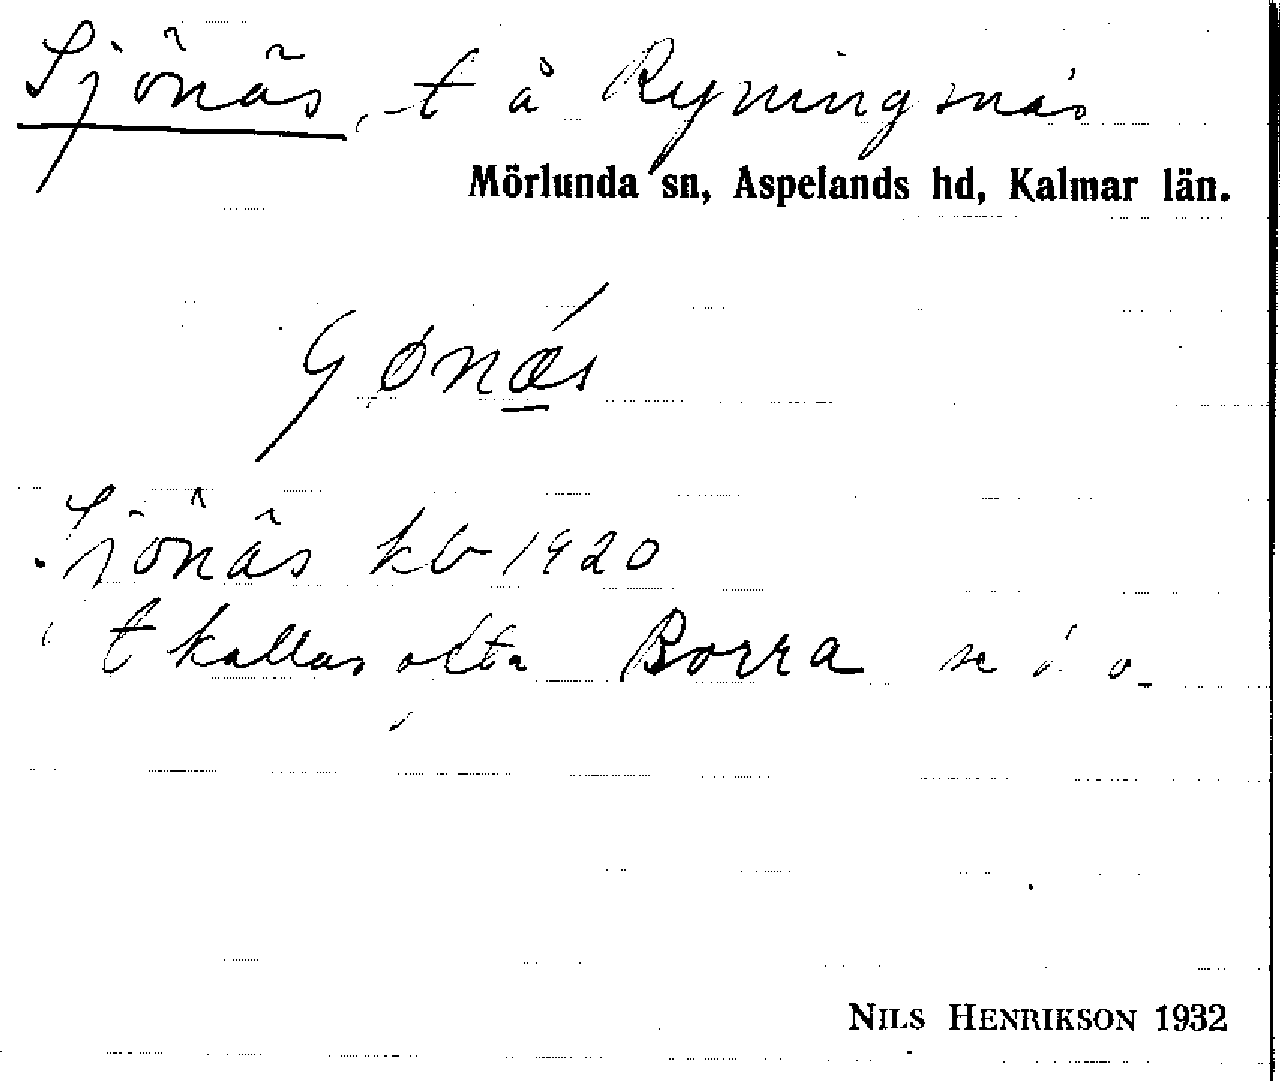 Sjönäs, t å Ryningsnäs
Mörlunda sn, Aspelands hd, Kalmar län.
Sjönäs kb 1920
t kallas ofta Borra se d o
NILS HENRIKSON 1932